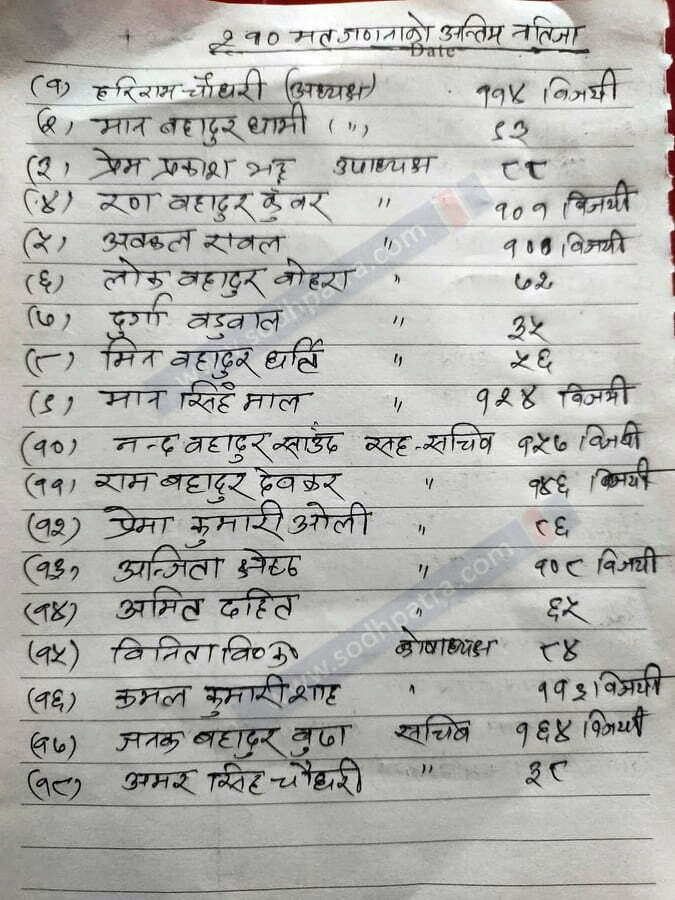 २१० मत गणनाको अन्तिम नतिजा
Date
(१) हरिराम चौधरी (अध्यक्ष) ११४ विजयी
(२) मान बहादुर धामी (") ९३
(३) प्रेम प्रकाश भट्ट उपाध्यक्ष ८८
(४) रण बहादुर कुँवर " १०१ विजयी
(५) अवकल रावल " १०१ विजयी
(६) लोक बहादुर बोहरा " ७२
(७) दुर्गा वडुवाल " ३५
(८) मिन बहादुर घर्ति " ५६
(९) मान सिंह माल " १२४ विजयी
(१०) नन्द बहादुर साउँद सह-सचिव १५७ विजयी
(११) राम बहादुर देवकर " १४६ विजयी
(१२) प्रेमा कुमारी ओली " ८६
(१३) अन्जिता श्रेष्ठ " १०८ विजयी
(१४) अमित दहित " ६५
(१५) विनिता वि०क० कोषाध्यक्ष ८४
(१६) कमल कुमारी शाह " ११३ विजयी
(१७) जनक बहादुर बुढा सचिव १६४ विजयी
(१८) अमर सिंह चौधरी " ३८
www.sodhpatra.com
www.sodhpatra.com